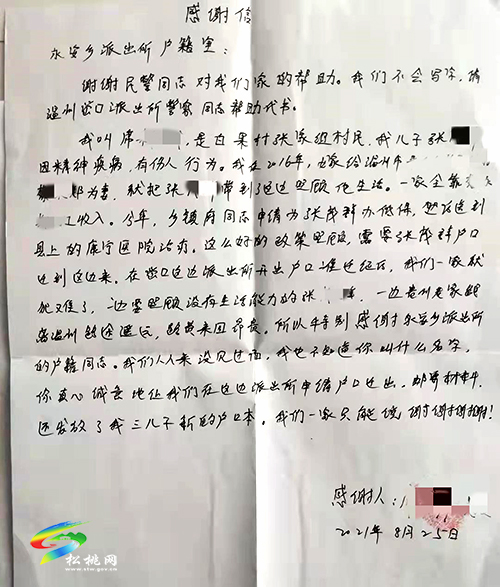 感谢信
永安乡派出所户籍室：
谢谢民警同志对我们家的帮助。我们不会写字，请
温州岙口派出所警察同志帮助代书。
我叫席，是白果村张家组村民，我儿子张
因精神疾病，有伤人行为。我在2016年，
为妻，就把张带到了这边照顾他生活。一家全靠
工收入。今年，乡镇府同志申请为张茂群办低保，然后送到
县上的康宁医院治疗。这么好的政策照顾，需要张茂群户口
迁到这边来。在岙口这边派出所开出户口准迁证后，我们一家就
犯难了，一边要照顾没有生活能力的张，一边贵州老家距
离温州路途遥远，路费来回昂贵，所以特别感谢永安乡派出所
的户籍同志。我们人人来没见过面，我也不知道你叫什么名字，
你真心诚意地让我们在这边派出所申请户口迁出，邮寄材料，
还发放了我三儿子新的户口本。我们一家只能说谢谢谢谢谢谢！
感谢人：
2021年8月25日
松桃网
www.stw.gov.cn